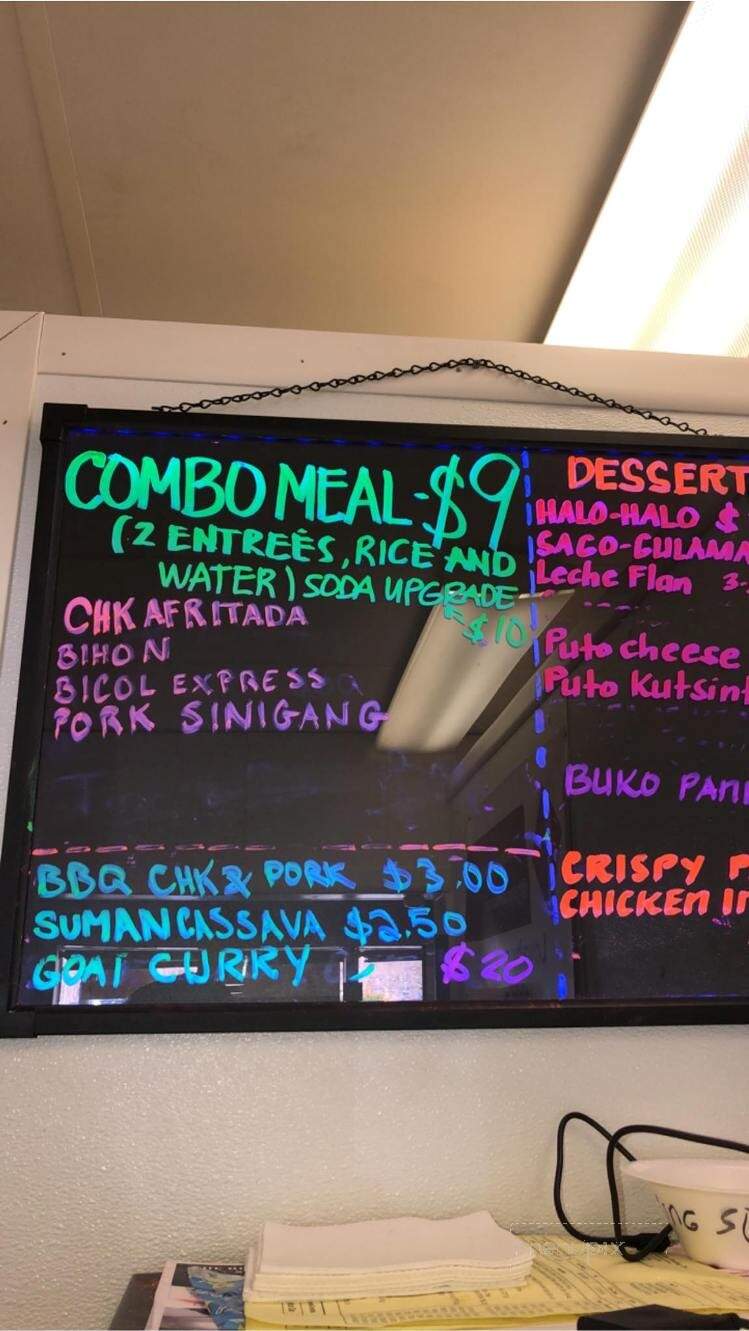 COMBO MEAL-$9
(2 ENTREÉS, RICE AND
WATER) SODA UPGRADE
= $10
CHK AFRITADA
BIHON
BICOL EXPRESS
PORK SINIGANG
BBQ CHK & PORK $3.00
SUMAN CASSAVA $2.50
GOAT CURRY - $20
DESSERT
HALO-HALO $
SAGO-GULAMA
Leche Flan 3-
Puto cheese
Puto Kutsint
BUKO PAN
CRISPY P
CHICKEN I
NG S